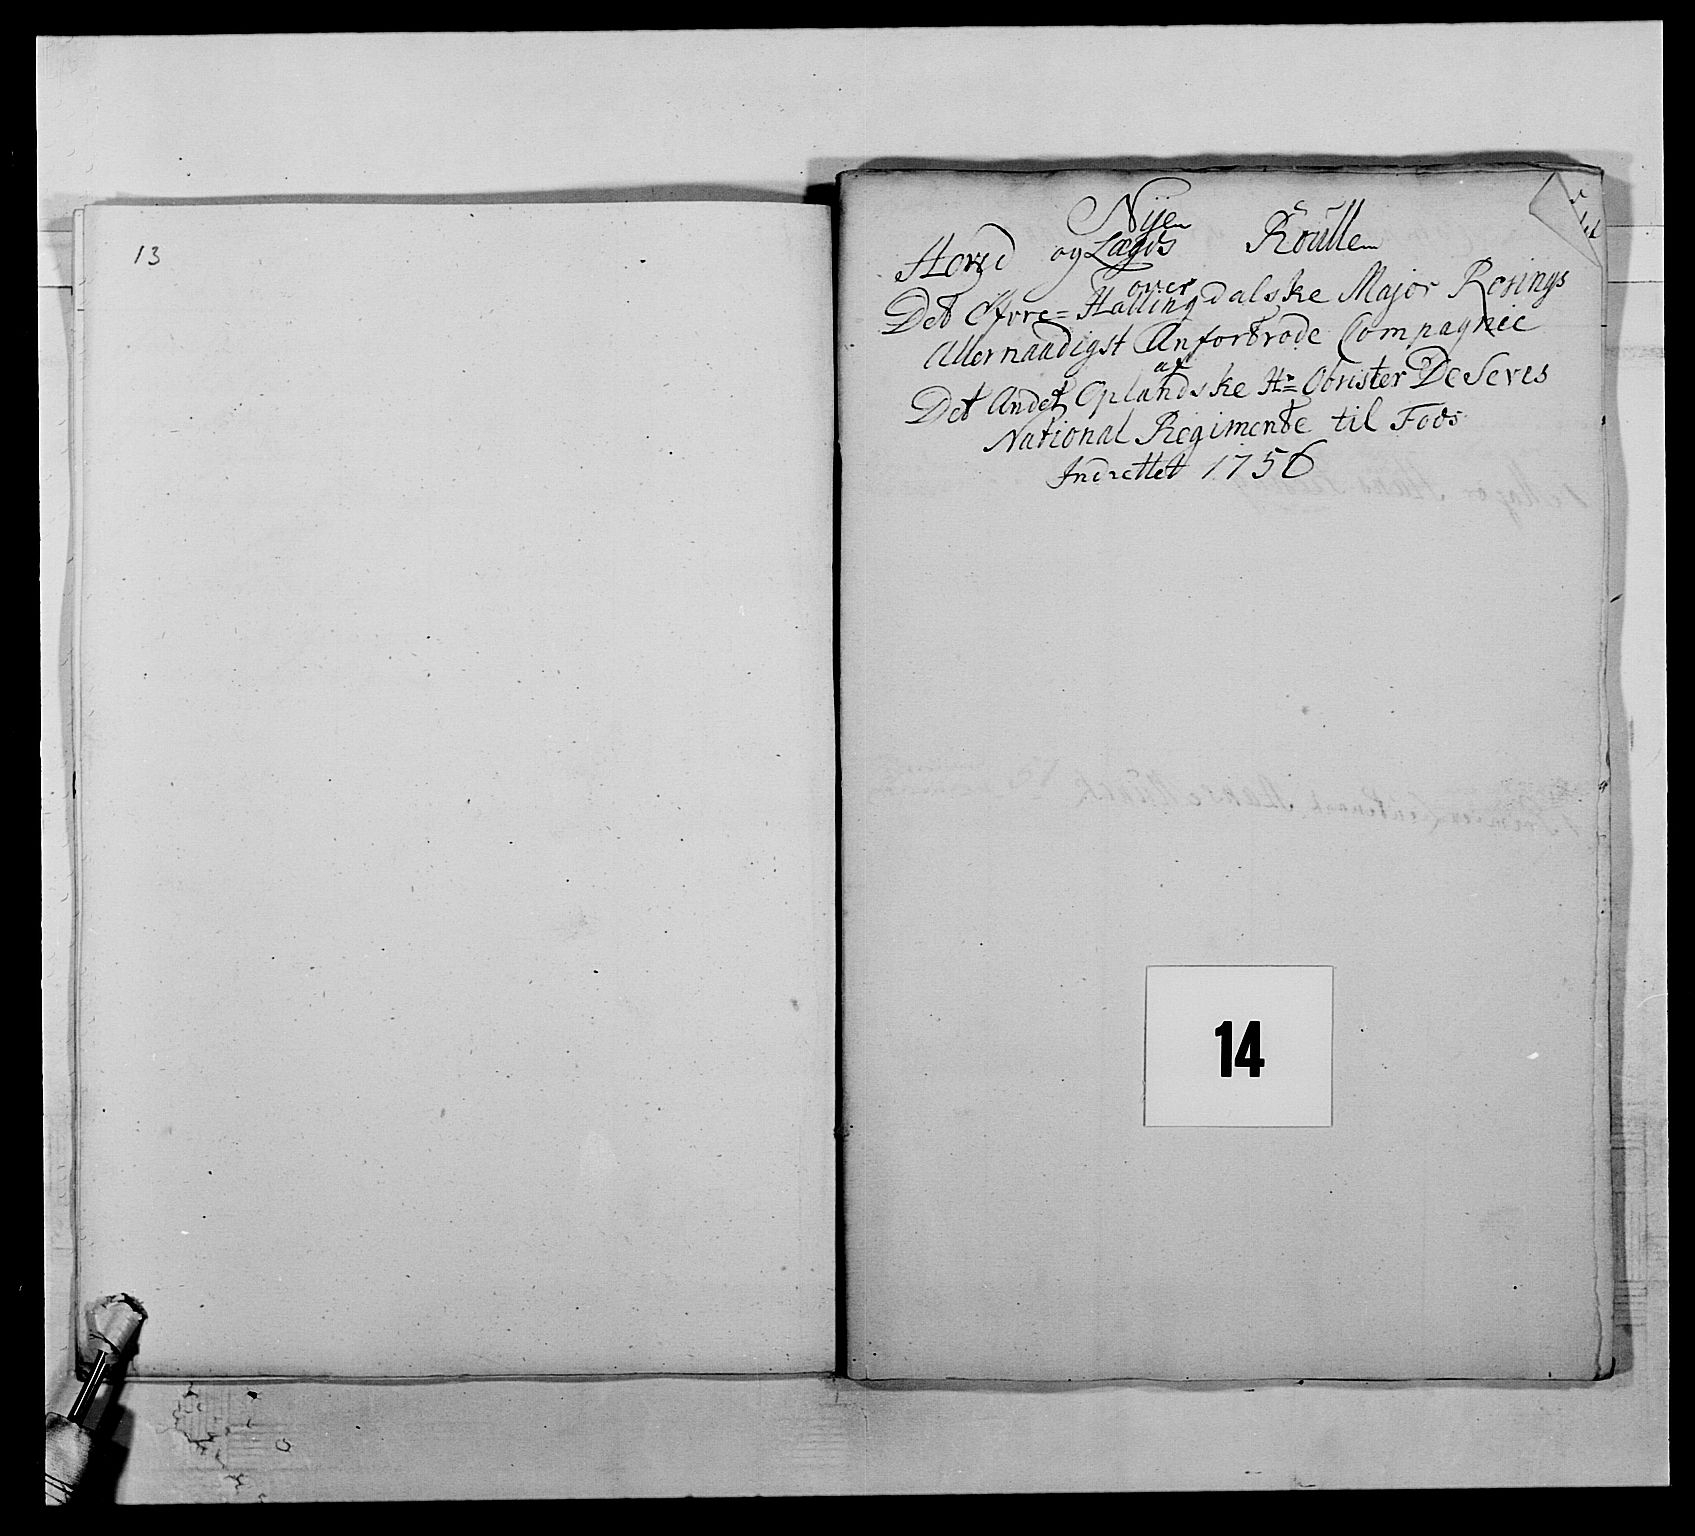 13
Nÿe
Hoved og Lægds Roulle
over
Det Øfvre= Hallingdalske Major Rosings
Allernaadigst Anfortrode Compagnie
af
Det Andet Oplandske Hr= Obrister DeSeves
National Regimente til Fods
Indrettet 1756
14